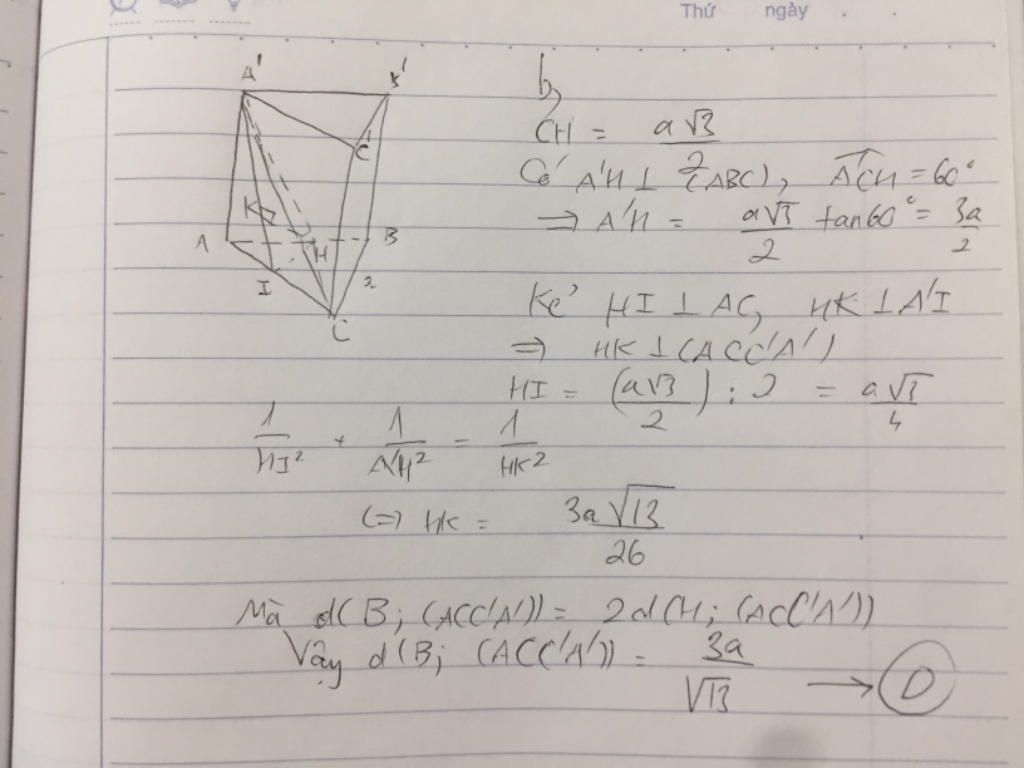 Thứ ngày . .
A' B'
C'
K
A H B
I 2
C
b,
CH = a√3/2
Có A'H ⊥ (ABC), A'CH = 60°
⇒ A'H = a√3/2 tan60° = 3a/2
Kẻ HI ⊥ AC, HK ⊥ A'I
⇒ HK ⊥ (ACC'A')
HI = (a√3/2) : 2 = a√3/4
1/HI² + 1/A'H² = 1/HK²
(=) HK = 3a√13/26
Mà d(B; (ACC'A')) = 2d(H; (ACC'A'))
Vậy d(B; (ACC'A')) = 3a/√13 → D